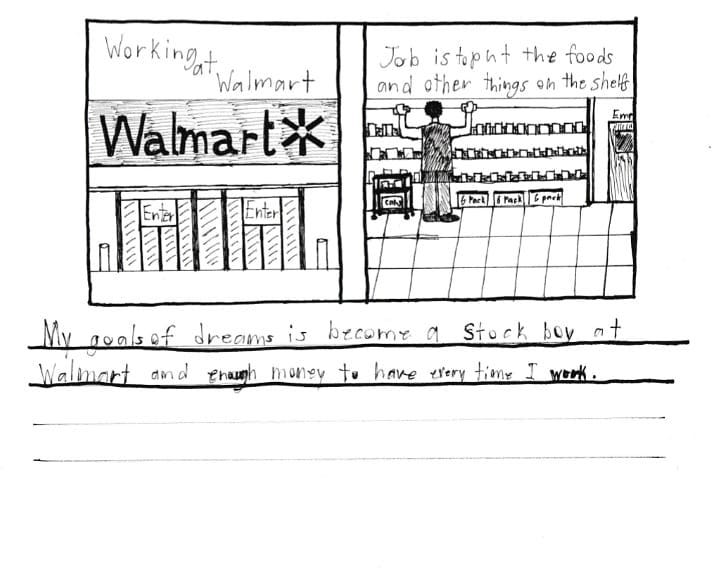 Working
at
Walmart
Walmart
Enter Enter
Job is to put the foods
and other things on the shelf
6 Pack 6 Pack 6 pack
My goals of dreams is become a Stock boy at
Walmart and enough money to have every time I work.